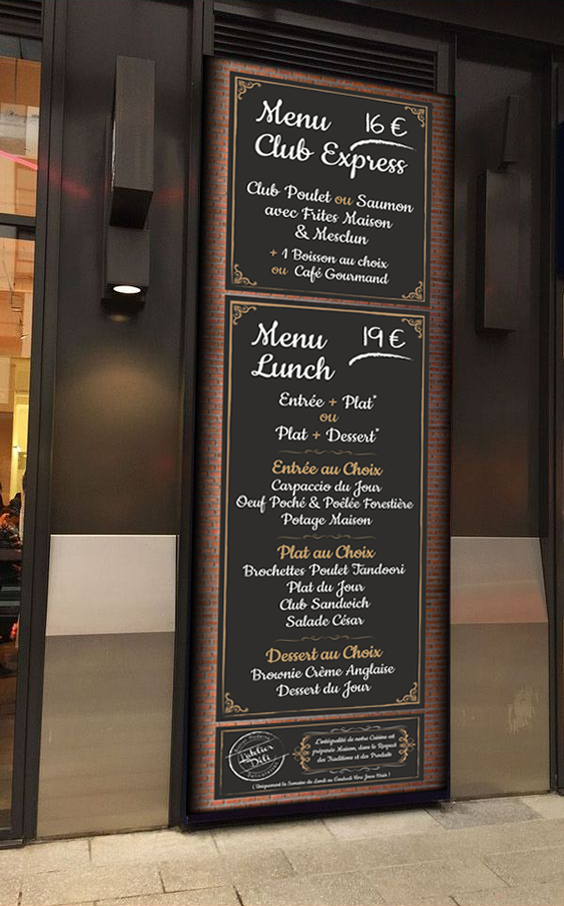 Menu 16 €
Club Express
Club Poulet ou Saumon
avec Frites Maison
& Mesclun
+ 1 Boisson au choix
ou Café Gourmand
Menu 19 €
Lunch
Entrée + Plat*
ou
Plat + Dessert*
Entrée au Choix
Carpaccio du Jour
Oeuf Poché & Poêlée Forestière
Potage Maison
Plat au Choix
Brochettes Poulet Tandoori
Plat du Jour
Club Sandwich
Salade César
Dessert au Choix
Brownie Crème Anglaise
Dessert du Jour
L'atelier
Déli
L'intégralité de notre Cuisine est
préparée Maison, dans le Respect
des Traditions et des Produits
( Uniquement la Semaine du Lundi au Vendredi Hors Jours Fériés )